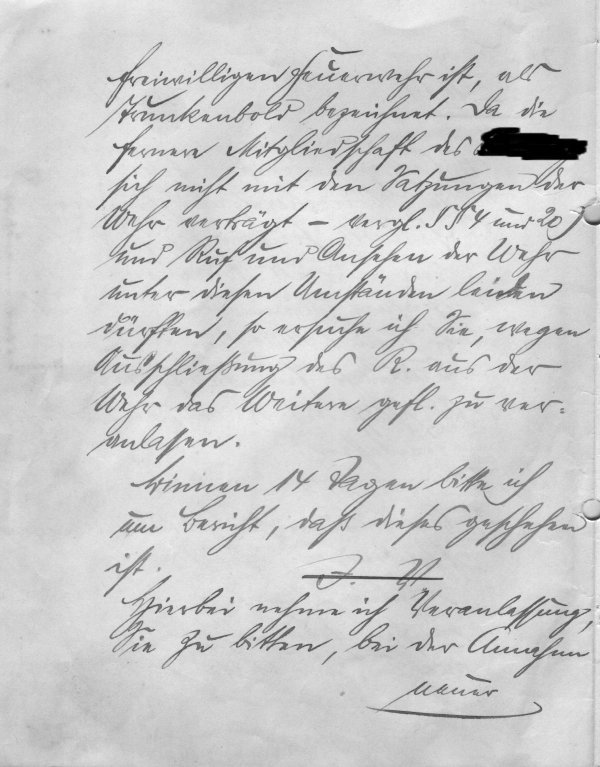 freiwilligen Feuerwehr ist, als
Trunkenbold bezeichnet. Da die
fernere Mitgliedschaft des
sich nicht mit den Satzungen der
Wehr verträgt – vergl. §§ 4 und 20
und Ruf und Ansehen der Wehr
unter diesen Umständen leiden
dürften, so ersuche ich Sie, wegen
Ausschließung des R. aus der
Wehr das Weitere gefl. zu ver-
anlassen.
Binnen 14 Tagen bitte ich
um Bericht, daß dieses geschehen
ist.
Hierbei nehme ich Veranlassung,
Sie zu bitten, bei der Annahme
neuer